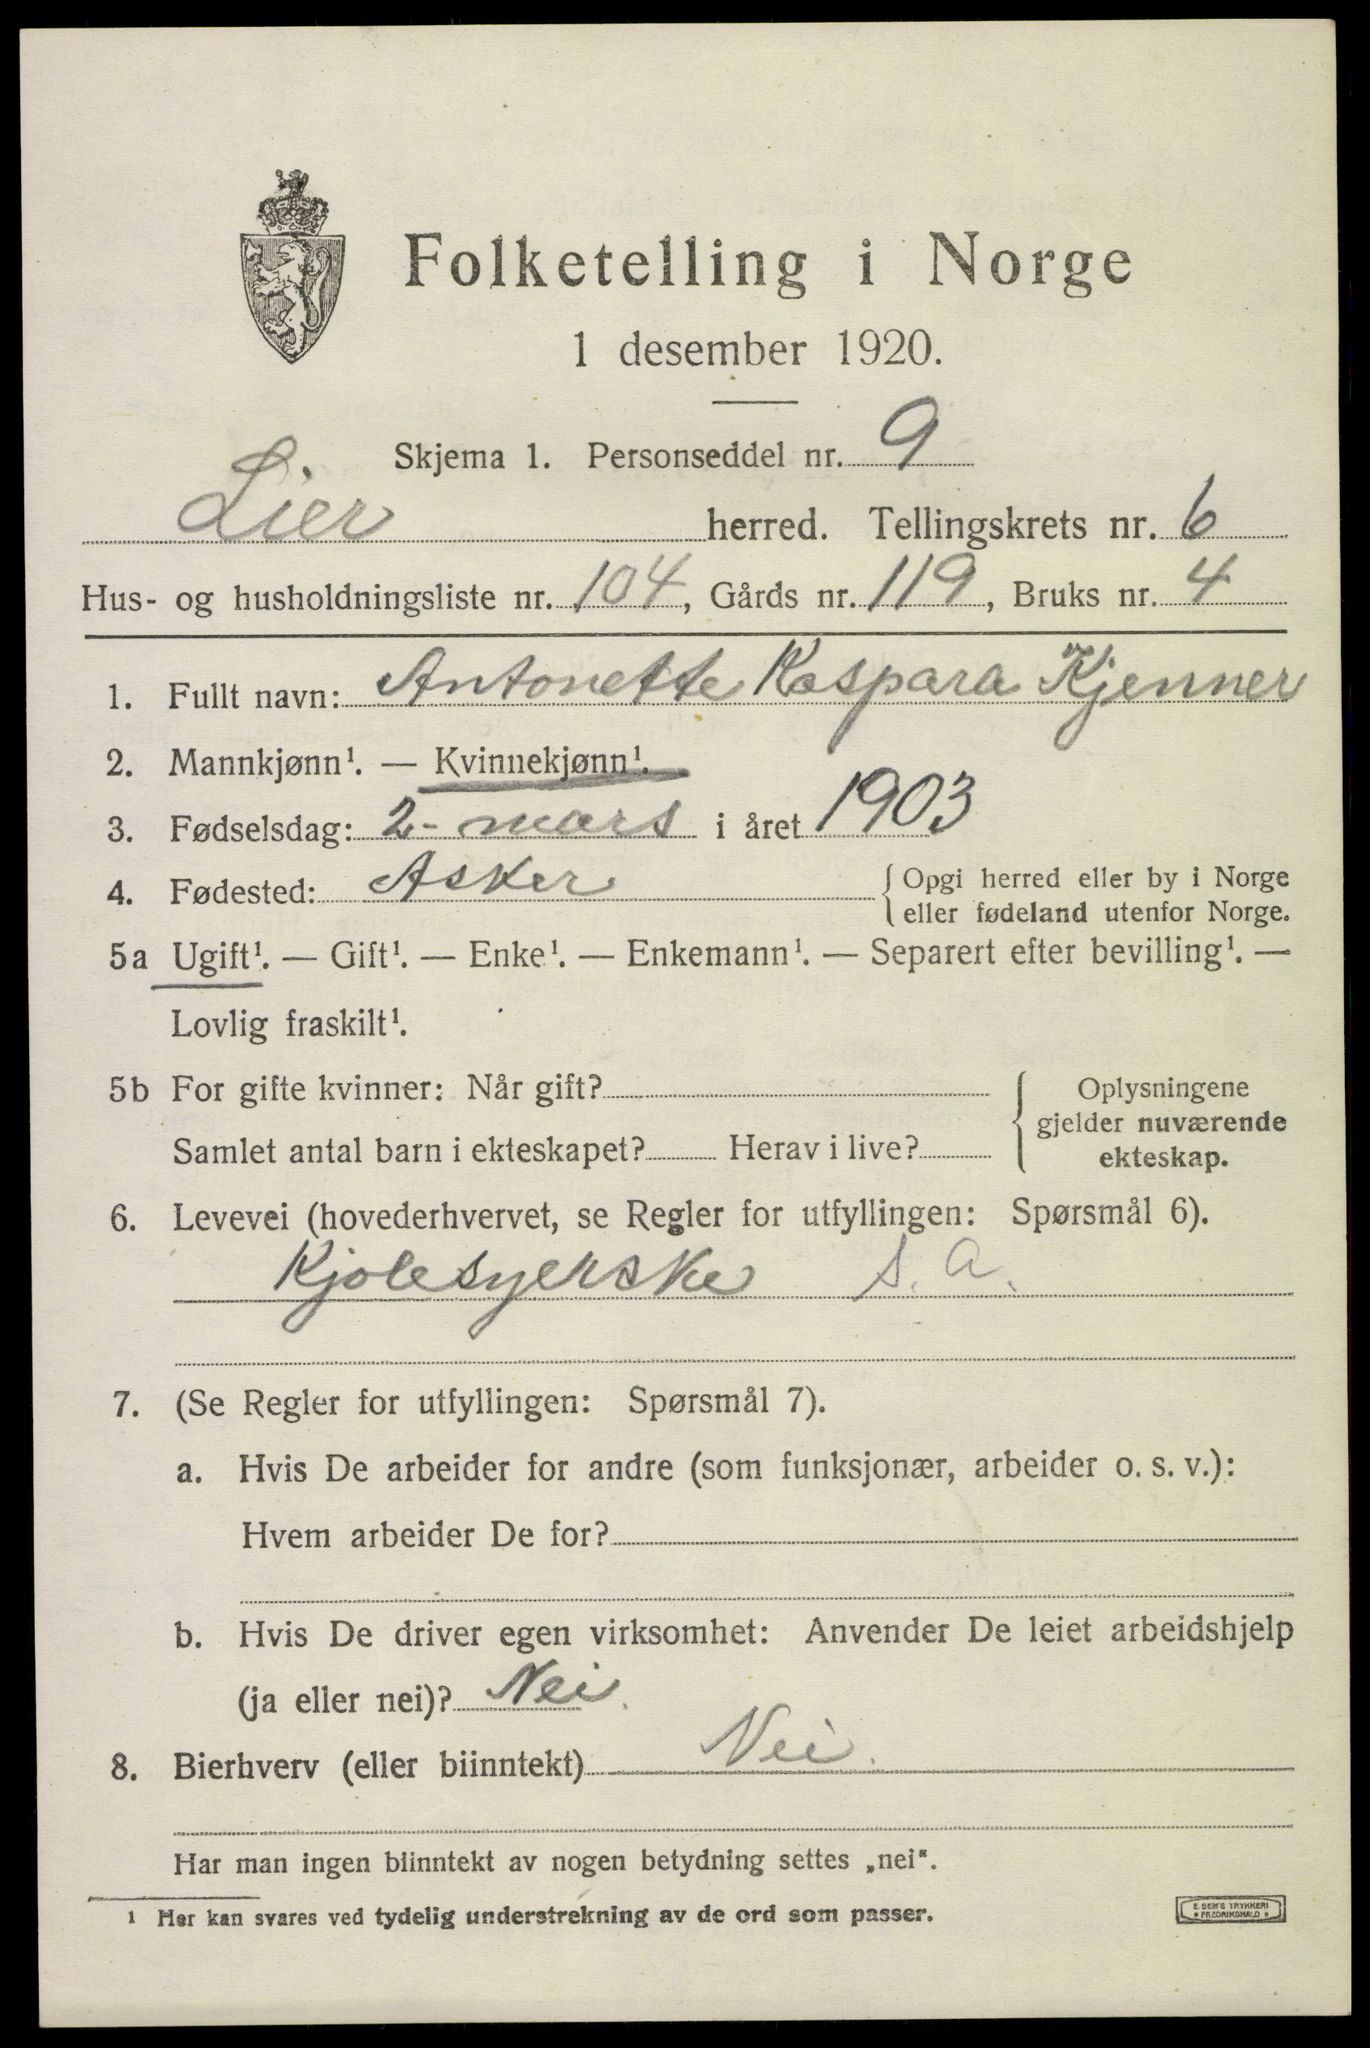 Folketelling i Norge
1 desember 1920.
Skjema 1. Personseddel nr. 9
Lier herred. Tellingskrets nr. 6
Hus- og husholdningsliste nr. 104, Gårds nr. 119, Bruks nr. 4
1. Fullt navn: Antonette Kaspara Kjenner
2. Mannkjønn¹. — Kvinnekjønn¹.
3. Fødselsdag: 2- mars i året 1903
4. Fødested: Asker { Opgi herred eller by i Norge
eller fødeland utenfor Norge.
5a Ugift¹. — Gift¹. — Enke¹. — Enkemann¹. — Separert efter bevilling¹. —
Lovlig fraskilt¹.
5b For gifte kvinner: Når gift? { Oplysningene
gjelder nuværende
Samlet antal barn i ekteskapet? Herav i live? ekteskap.
6. Levevei (hovederhvervet, se Regler for utfyllingen: Spørsmål 6).
Kjolesyerske S. A.
7. (Se Regler for utfyllingen: Spørsmål 7).
a. Hvis De arbeider for andre (som funksjonær, arbeider o. s. v.):
Hvem arbeider De for?
b. Hvis De driver egen virksomhet: Anvender De leiet arbeidshjelp
(ja eller nei)? Nei.
8. Bierhverv (eller biinntekt) Nei.
Har man ingen biinntekt av nogen betydning settes „nei".
¹ Her kan svares ved tydelig understrekning av de ord som passer.
E. SEM'S TRYKKERI
• FREDRIKSHALD •